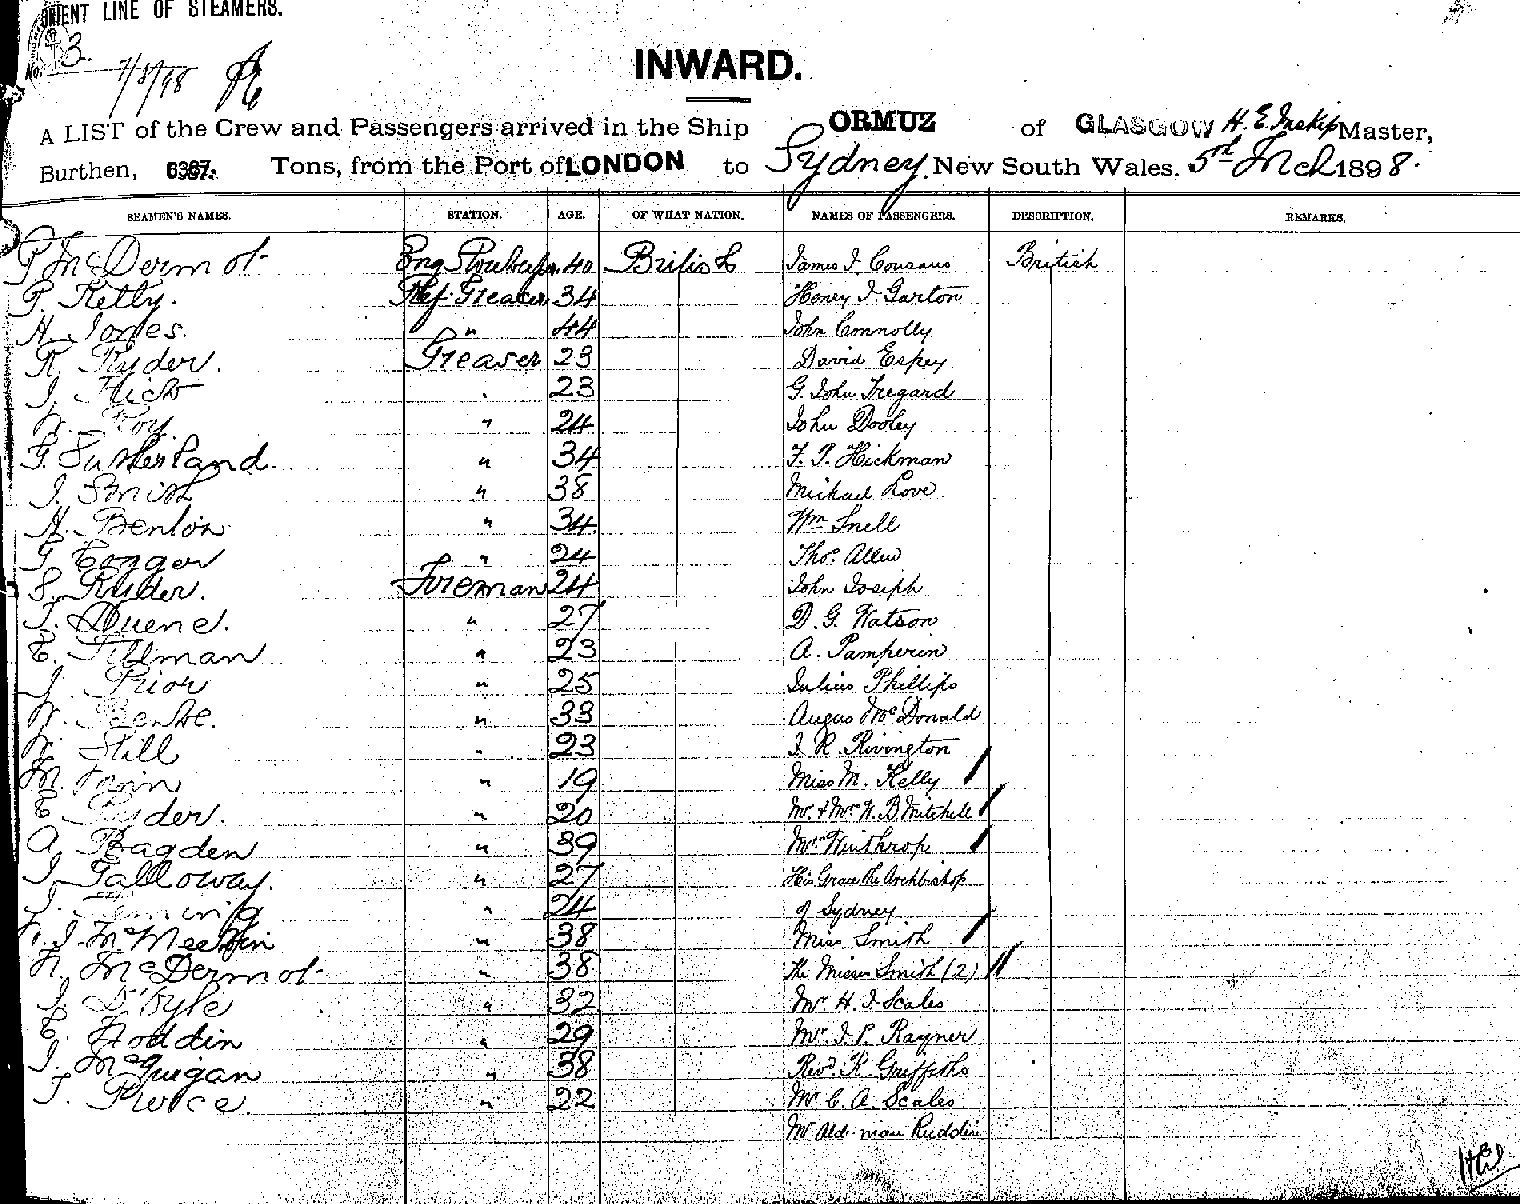 ORIENT LINE OF STEAMERS.
No. 13
7/3/98
INWARD.
A LIST of the Crew and Passengers arrived in the Ship ORMUZ of GLASGOW H. E. Inskip Master,
Burthen, 6387. Tons, from the Port of LONDON to Sydney, New South Wales. 5th Mch 1898.
SEAMEN'S NAMES. STATION. AGE. OF WHAT NATION. NAMES OF PASSENGERS. DESCRIPTION. REMARKS.
P. McDermot Eng. Storekeeper 40 British James J. Cousans British
P. Kelly. Ref. Greaser 34 Henry J. Garton
H. Jones. " 44 John Connolly
R. Ryder. Greaser 23 David Espey
J. 23 G. John Tregard
W. Roy. " 24 John Dooley
G. Sutherland. " 34 F. P. Hickman
J. Smith " 38 Michael Love
H. Benton " 34 Wm Snell
G. Conger " 24 Thos. Allen
S. Ryder. Fireman 24 John Joseph
T. Duene. " 27 D. G. Watson
E. Tillman " 23 A. Pamperin
J. Prior " 25 Julius Phillips
W. " 33 Angus McDonald
W. Still " 23 J. R. Rivington
M. " 19 Miss M. Kelly
E. Ryder. " 20 Mr. & Mrs W. B. Mitchell
A. Bagden " 39 Mrs Winthrop
J. Galloway. " 27 His Grace the Archbishop
J. " 24 of Sydney
J. McMeekin " 38 Miss Smith
N. McDermot " 38 The Misses Smith (2)
J. " 32 Mr H. J. Scales
E. Hoddin " 29 Mr. J. P. Rayner
J. McGuigan " 38 Revd. K. Griffiths
T. Pierce. " 22 Mr C. A. Scales
Mr Alderman Ruddin